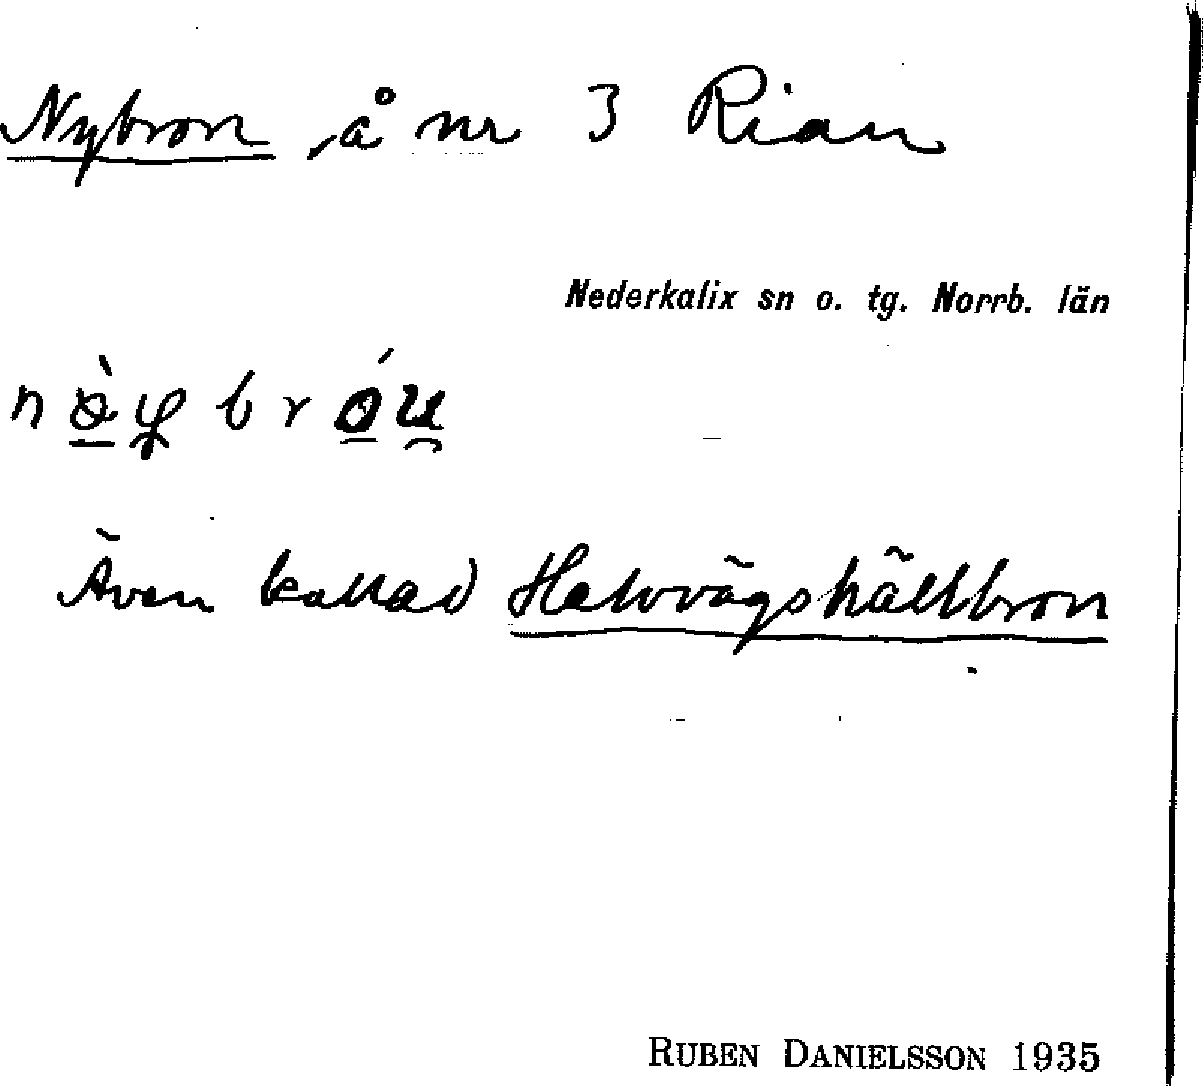 Nybron, å nr 3 Rian
Nederkalix sn o. tg. Norrb. län
Även kallad Halvvägshällbron
RUBEN DANIELSSON 1935